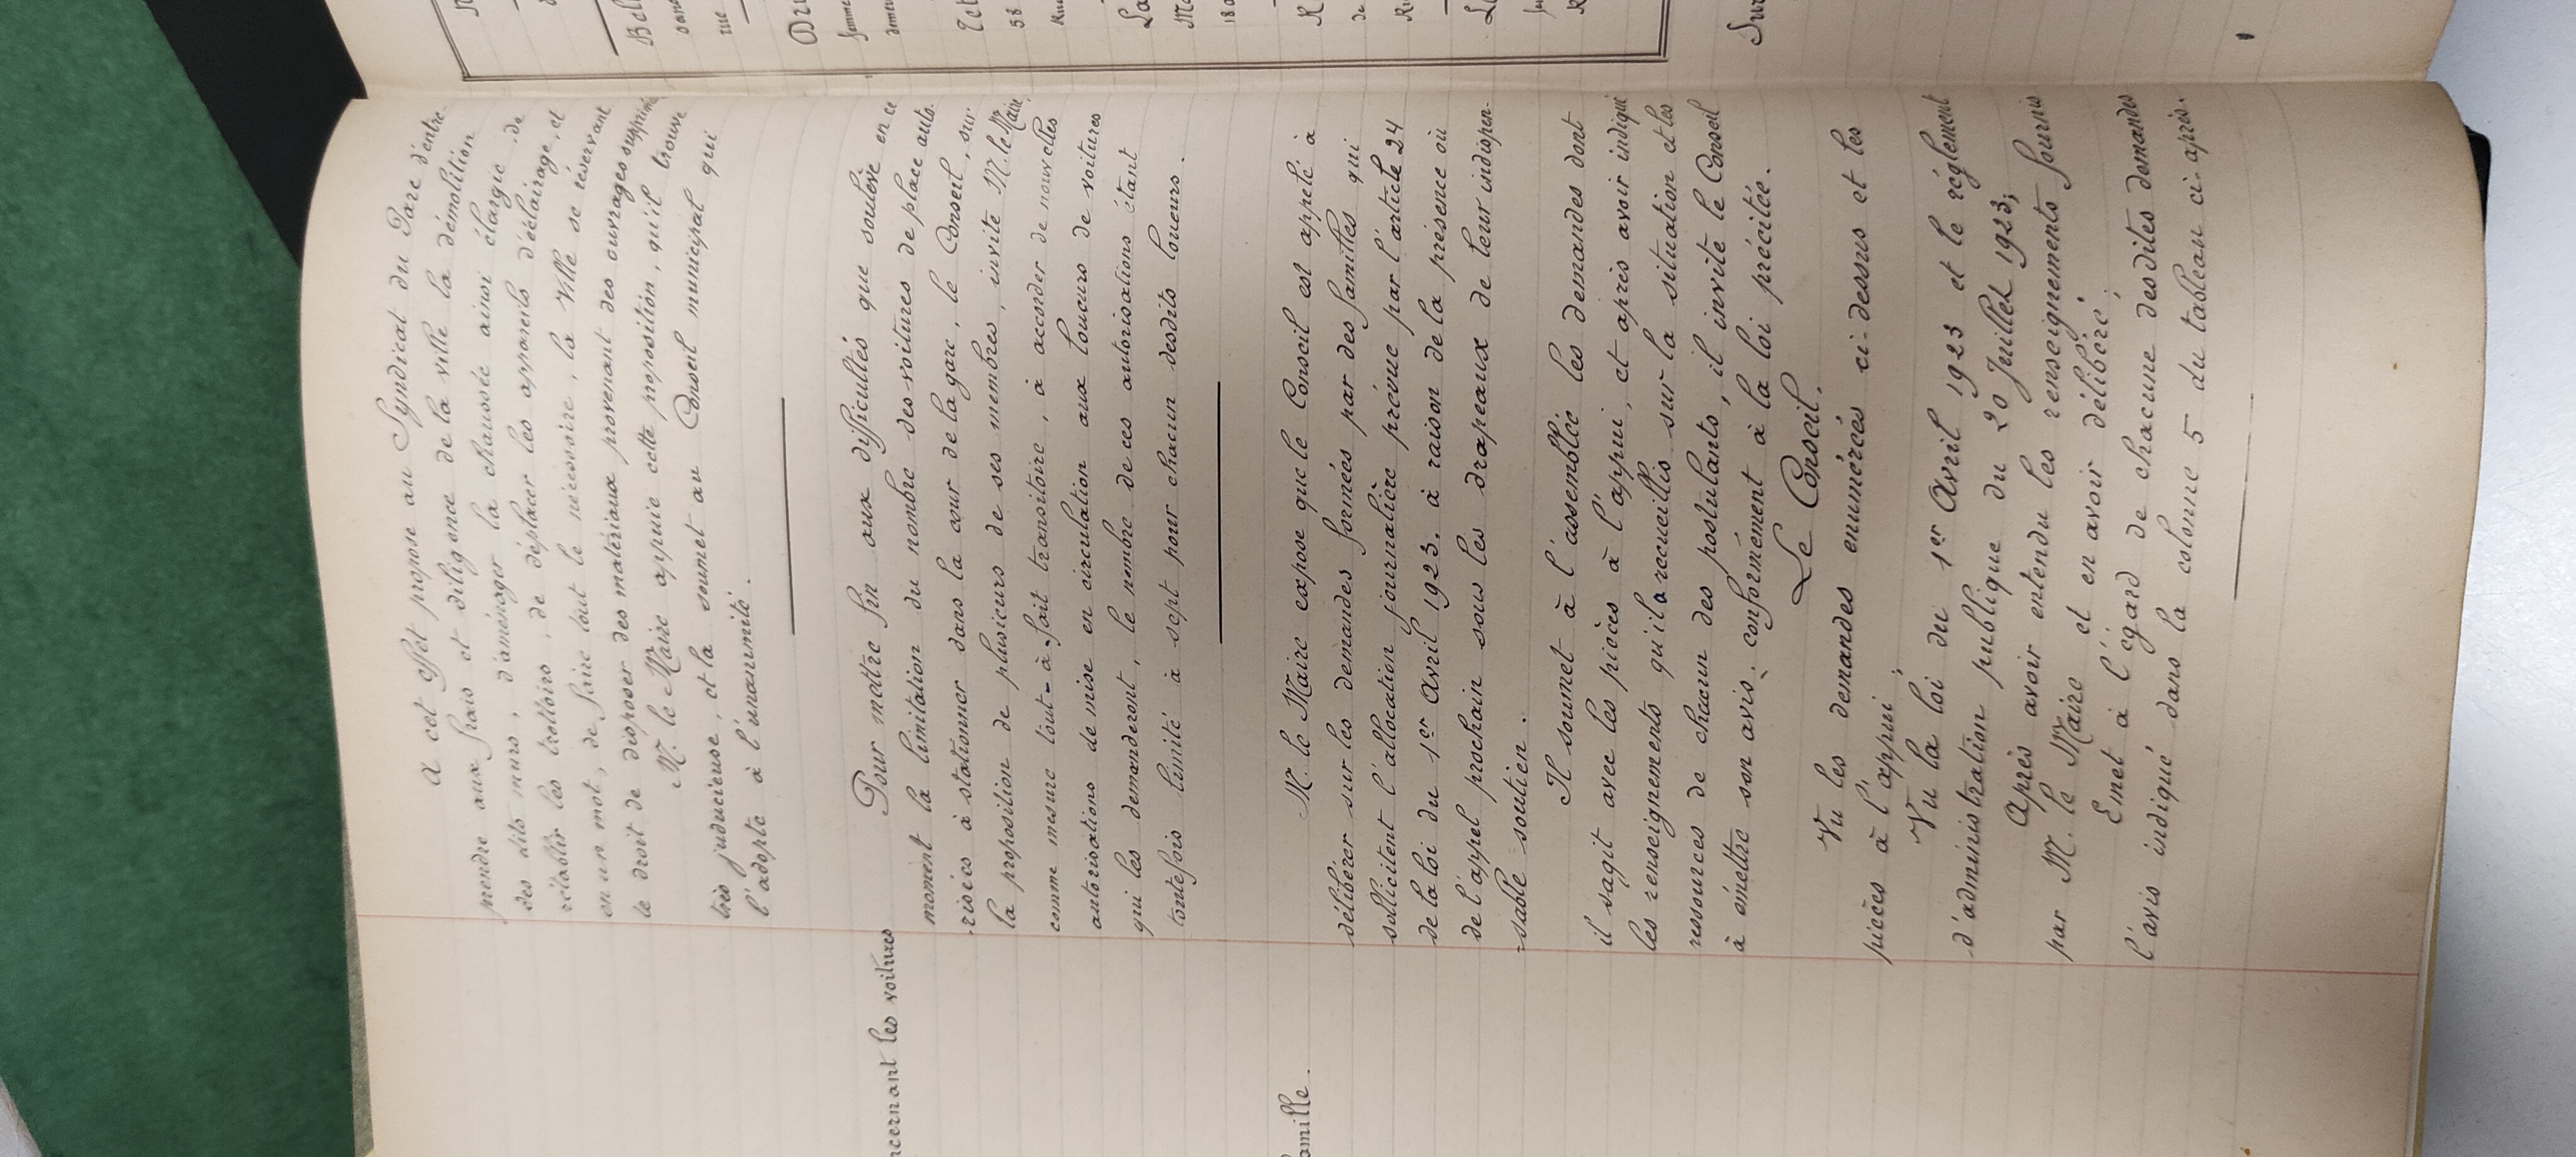 A cet effet propose au Syndicat du Parc d'entre-
prendre aux frais et diligence de la ville la démolition
des dits murs, d'aménager la chaussée ainsi élargie, de
rétablir les trottoirs, de déplacer les appareils d'éclairage, et
en un mot, de faire tout le nécessaire, la Ville se réservant
le droit de disposer des matériaux provenant des ouvrages supprimés
M. le Maire appuie cette proposition, qu'il trouve
très judicieuse, et la soumet au Conseil municipal qui
l'adopte à l'unanimité.
ncernant les voitures
Pour mettre fin aux difficultés que soulève en ce
moment la limitation du nombre des voitures de place auto-
risées à stationner dans la cour de la gare, le Conseil, sur
la proposition de plusieurs de ses membres, invite M. le Maire,
comme mesure tout-à-fait transitoire, à accorder de nouvelles
autorisations de mise en circulation aux loueurs de voitures
qui les demanderont, le nombre de ces autorisations étant
toutefois limité à sept pour chacun desdits loueurs.
amille.
M. le Maire expose que le Conseil est appelé à
délibérer sur les demandes formées par des familles qui
sollicitent l'allocation journalière prévue par l'article 24
de la loi du 1er Avril 1923, à raison de la présence où
de l'appel prochain sous les drapeaux de leur indispen-
-sable soutien.
Il soumet à l'assemblée les demandes dont
il sagit avec les pièces à l'appui, et après avoir indiqué
les renseignements qu'il a recueillis sur la situation et les
ressources de chacun des postulants, il invite le Conseil
à émettre son avis, conformément à la loi précitée.
Le Conseil,
Vu les demandes enumérées ci-dessus et les
pièces à l'appui;
Vu la loi du 1er Avril 1923 et le règlement
d'administration publique du 20 Juillet 1923;
Après avoir entendu les renseignements fournis
par M. le Maire et en avoir délibéré;
Emet à l'égard de chacune desdites demandes
l'avis indiqué dans la colonne 5 du tableau ci-après.